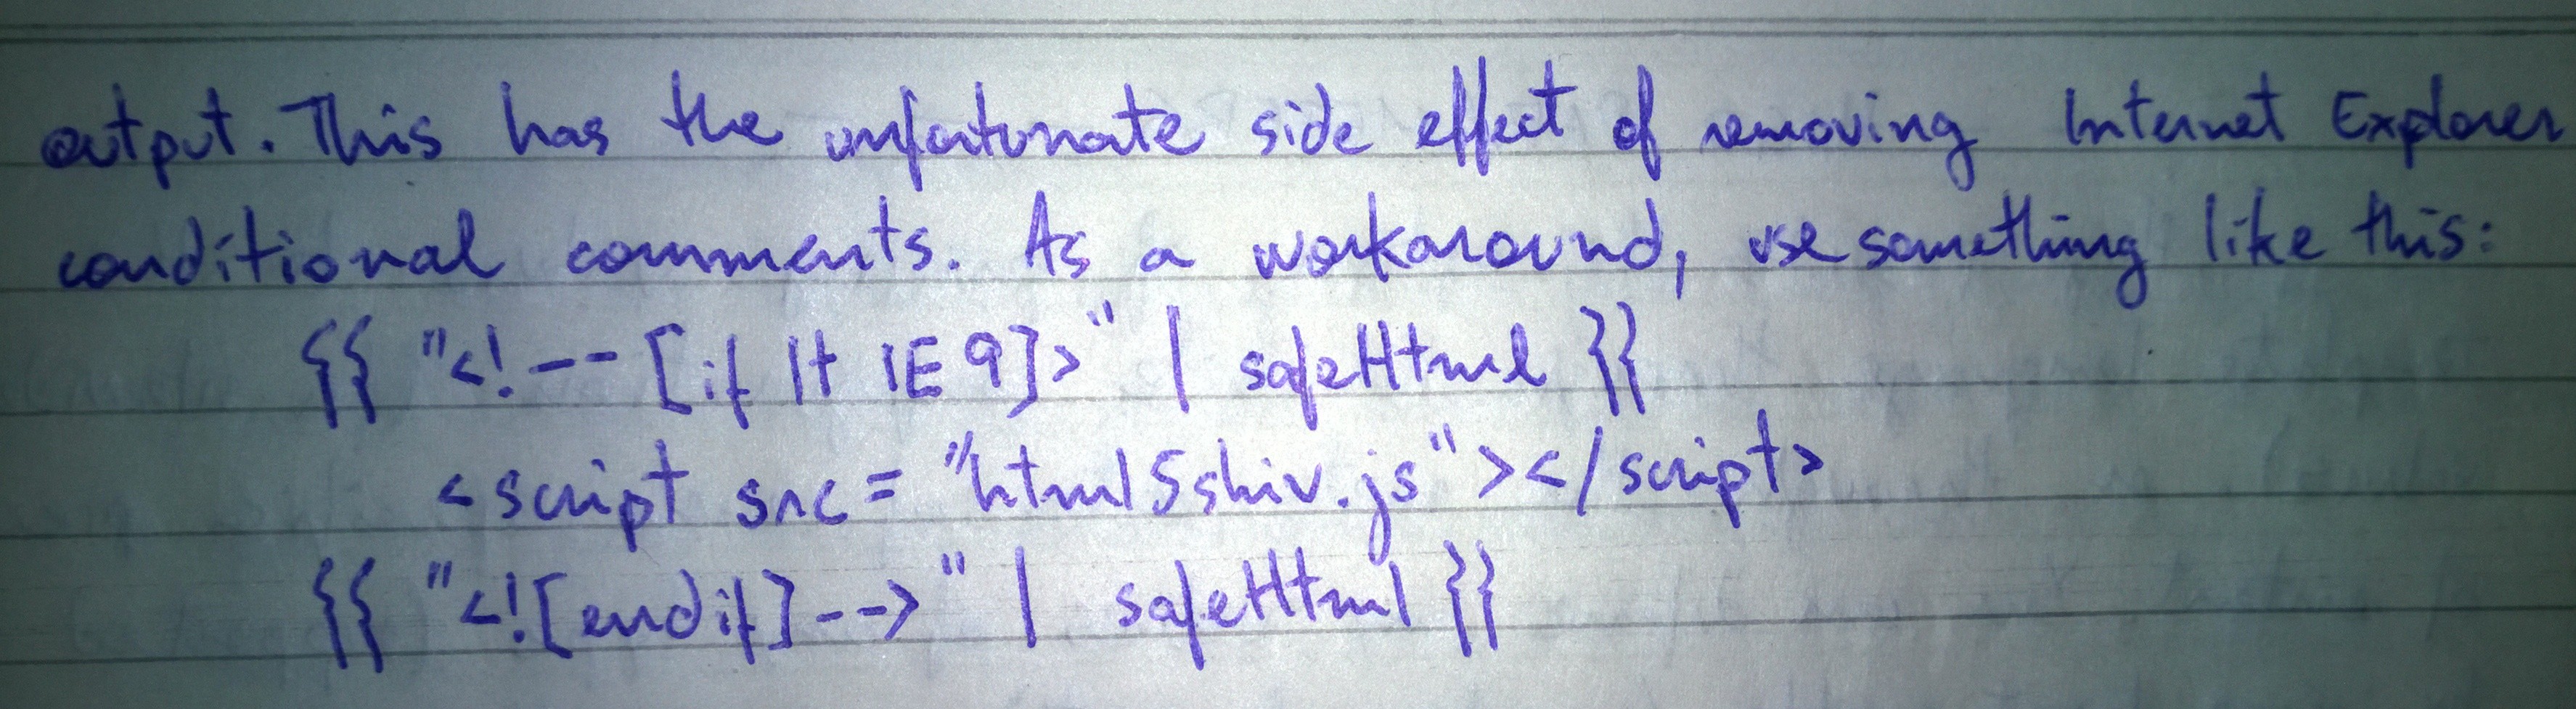 output. This has the unfortunate side effect of removing Internet Explorer
conditional comments. As a workaround, use something like this:
{{ "<!--[if lt IE 9]>" | safeHtml }}
<script src="html5shiv.js"></script>
{{ "<![endif]-->" | safeHtml }}